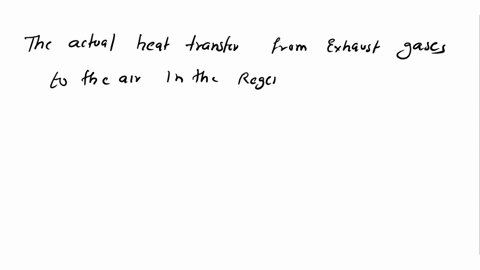 The actual heat transfer from Exhaust gases
to the air In the Rege